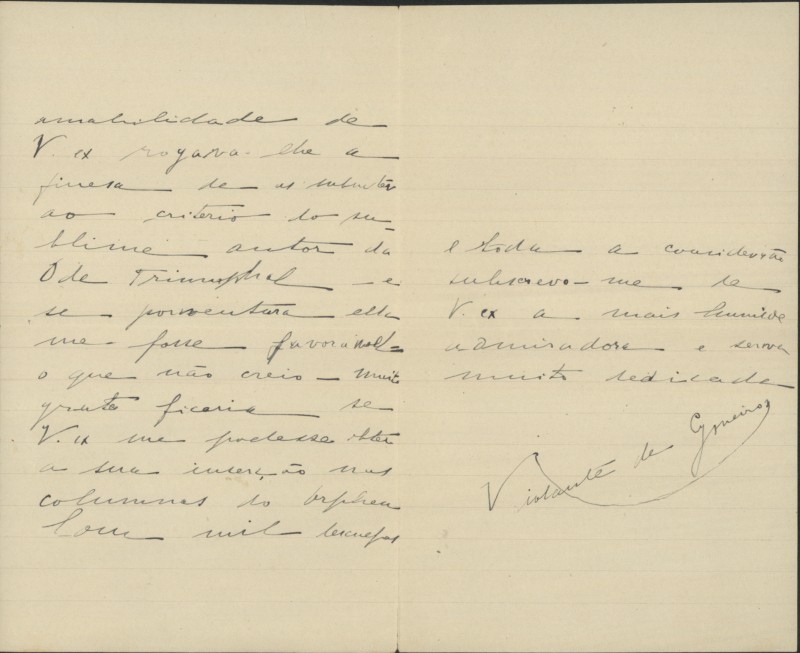 amabilidade de
V. ex rogava-lhe a
finesa de as submeter
ao criterio do su-
blime autor da
Ode Triumphal - e
se porventura elle
me fosse favoravel -
o que não creio - muito
grata ficaria se
V. ex me podesse obter
a sua inserção nas
columnas do Orpheu
Com mil desculpas
e toda a consideração
subscrevo-me de
V. ex a mais humilde
admiradora e serva
muito dedicada
Violante de Cysneiros